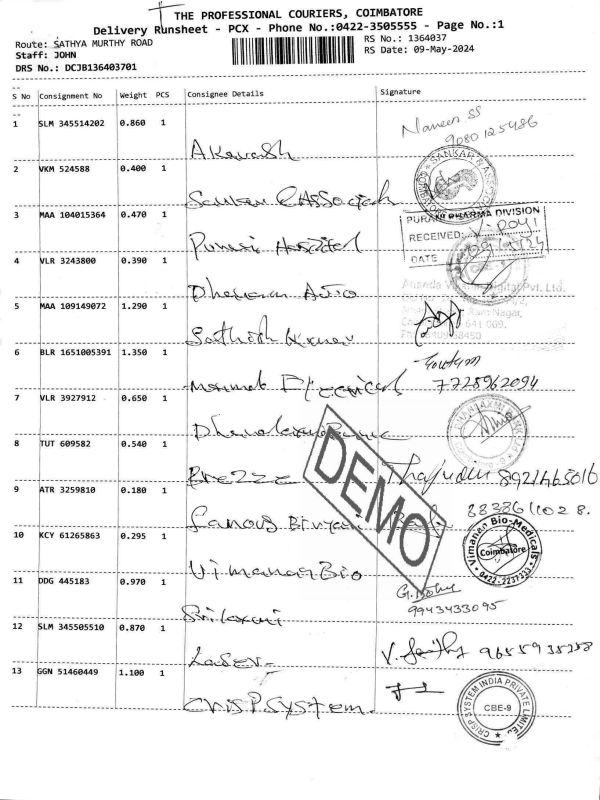 THE PROFESSIONAL COURIERS, COIMBATORE
Delivery Runsheet - PCX - Phone No.:0422-3505555 - Page No.:1
Route: SATHYA MURTHY ROAD
RS No.: 1364037
Staff: JOHN
RS Date: 09-May-2024
DRS No.: DCJB136403701
S No Consignment No Weight PCS Consignee Details Signature
1 SLM 345514202 0.860 1 Akavash Naveen SS
9080125486
2 VKM 524588 0.400 1 Sankar & Associates
3 MAA 104015364 0.470 1 Purani Hospital
PURANI PHARMA DIVISION
RECEIVED:
DATE
4 VLR 3243800 0.390 1 Dhanam Auto
Pvt. Ltd.
Ram Nagar,
641 009.
5 MAA 109149072 1.290 1 Sathish Kumar
6 BLR 1651005391 1.350 1 Electrical Goutham
7725962094
7 VLR 3927912 0.650 1
8 TUT 609582 0.540 1 Brezze Thajudin 8921465016
9 ATR 3259810 0.180 1 Famous Biriyani
10 KCY 61265863 0.295 1 Vimanar Bio
Vimanan Bio-Medicals
Coimbatore
0422-2237333
11 DDG 445183 0.970 1 Srilaxmi
9943433095
12 SLM 345505510 0.870 1 Laser
13 GGN 51460449 1.100 1 CRISP System.
CRISP SYSTEM INDIA PRIVATE LIMITED
CBE-9
DEMO